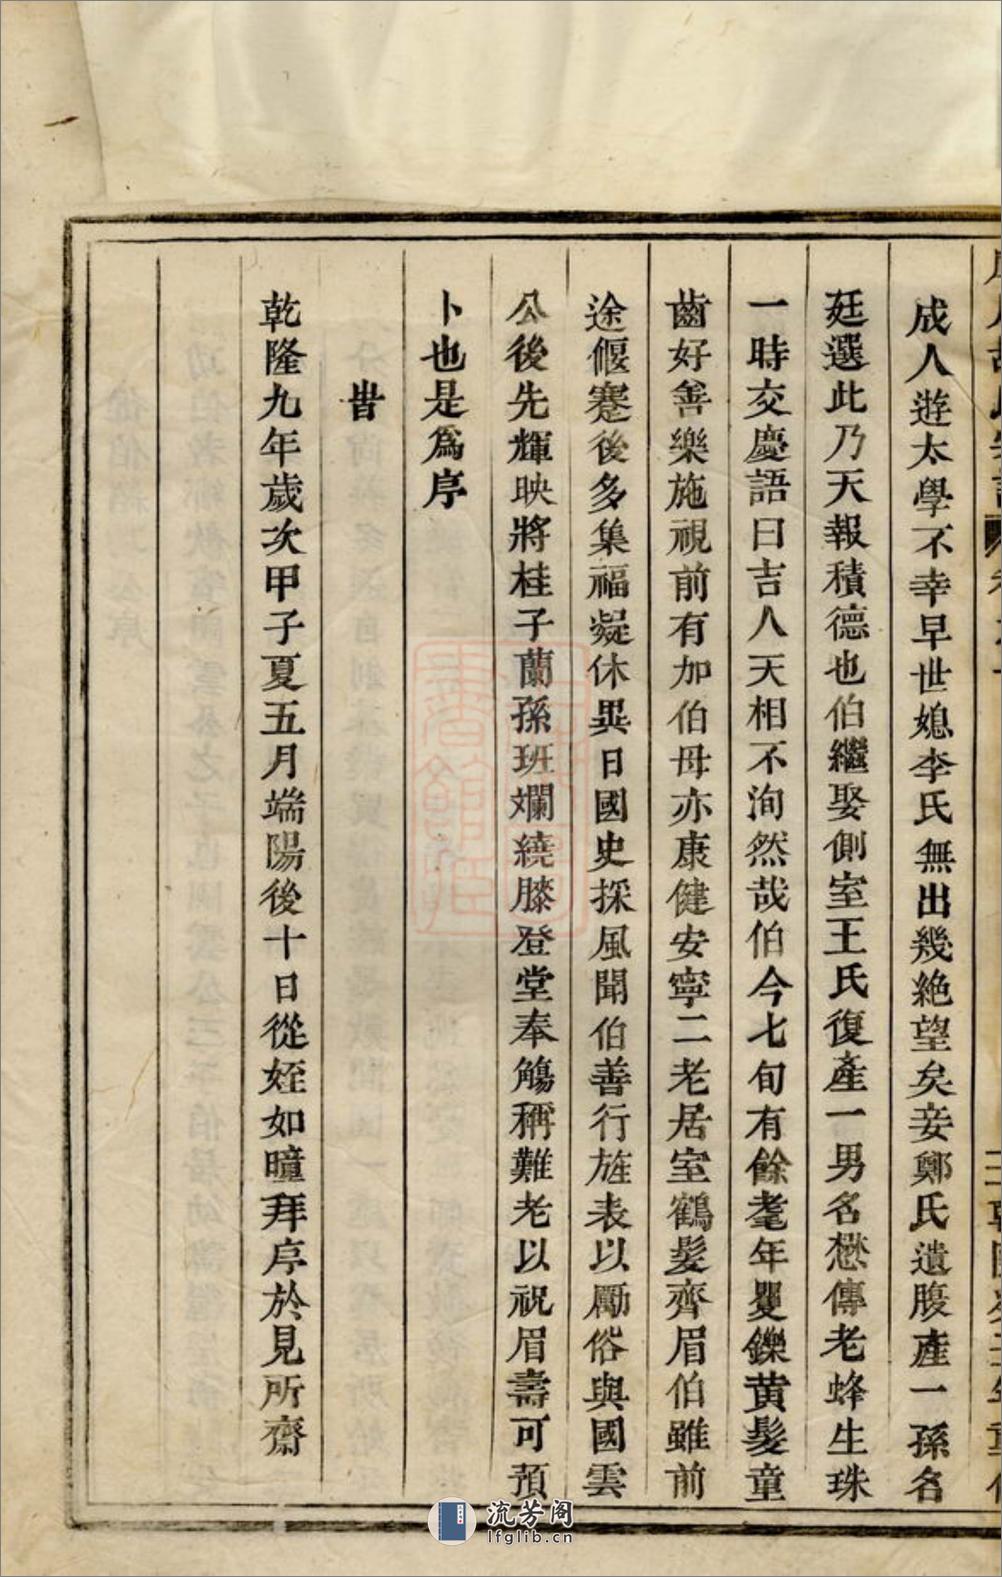 成人遊太學不幸早世媳李氏無出幾絶望矣妾鄭氏遺腹產一孫名
廷選此乃天報積德也伯繼娶側室王氏復產一男名懋傳老蜂生珠
一時交慶語曰吉人天相不洵然哉伯今七旬有餘耄年矍鑠黄髮童
齒好善樂施視前有加伯母亦康健安寧二老居室鶴髮齊眉伯雖前
途偃蹇後多集福凝休異日國史採風聞伯善行旌表以勵俗與國雲
公後先輝映將桂子蘭孫班斕繞膝登堂奉觴稱難老以祝眉壽可預
卜也是爲序
旹
乾隆九年歲次甲子夏五月端陽後十日從姪如曈拜序於見所齋
流芳阁
lfglib.cn